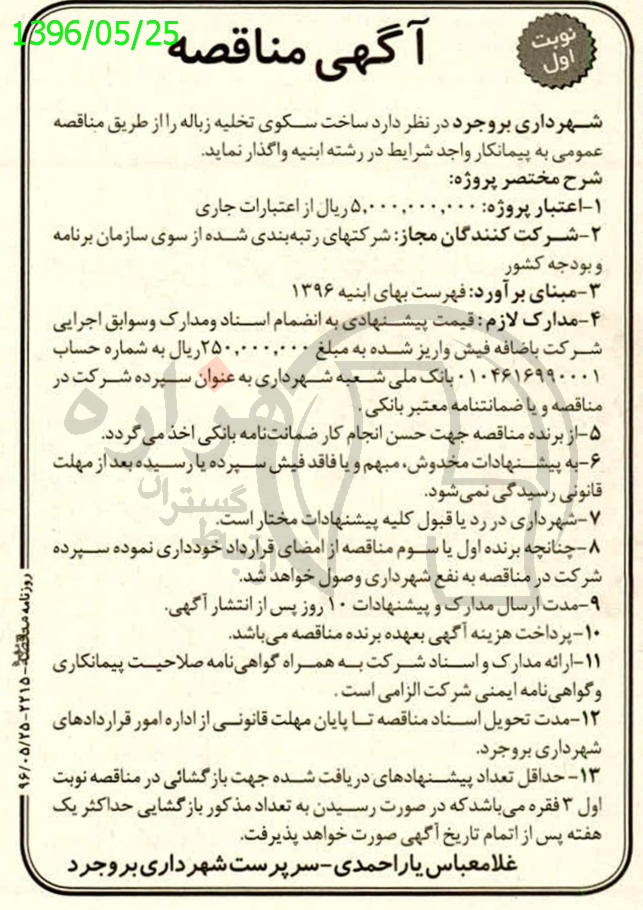 1396/05/25
نوبت
اول
آگهی مناقصه
شهرداری بروجرد در نظر دارد ساخت سکوی تخلیه زباله را از طریق مناقصه
عمومی به پیمانکار واجد شرایط در رشته ابنیه واگذار نماید.
شرح مختصر پروژه:
۱-اعتبار پروژه: ۵,۰۰۰,۰۰۰,۰۰۰ ریال از اعتبارات جاری
۲-شرکت کنندگان مجاز: شرکتهای رتبه‌بندی شده از سوی سازمان برنامه
و بودجه کشور
۳-مبنای برآورد: فهرست بهای ابنیه ۱۳۹۶
۴-مدارک لازم: قیمت پیشنهادی به انضمام اسناد ومدارک وسوابق اجرایی
شرکت باضافه فیش واریز شده به مبلغ ۲۵۰,۰۰۰,۰۰۰ریال به شماره حساب
۰۱۰۴۶۱۶۹۹۰۰۰۱ بانک ملی شعبه شهرداری به عنوان سپرده شرکت در
مناقصه و یا ضمانتنامه معتبر بانکی.
۵-از برنده مناقصه جهت حسن انجام کار ضمانت‌نامه بانکی اخذ می‌گردد.
۶-به پیشنهادات مخدوش، مبهم و یا فاقد فیش سپرده یا رسیده بعد از مهلت
قانونی رسیدگی نمی‌شود.
۷-شهرداری در رد یا قبول کلیه پیشنهادات مختار است.
۸-چنانچه برنده اول یا سوم مناقصه از امضای قرارداد خودداری نموده سپرده
شرکت در مناقصه به نفع شهرداری وصول خواهد شد.
۹-مدت ارسال مدارک و پیشنهادات ۱۰ روز پس از انتشار آگهی.
۱۰-پرداخت هزینه آگهی بعهده برنده مناقصه می‌باشد.
۱۱-ارائه مدارک و اسناد شرکت به همراه گواهی‌نامه صلاحیت پیمانکاری
وگواهی‌نامه ایمنی شرکت الزامی است.
۱۲-مدت تحویل اسناد مناقصه تا پایان مهلت قانونی از اداره امور قراردادهای
شهرداری بروجرد.
۱۳-حداقل تعداد پیشنهادهای دریافت شده جهت بازگشائی در مناقصه نوبت
اول ۳ فقره می‌باشدکه در صورت رسیدن به تعداد مذکور بازگشایی حداکثر یک
هفته پس از اتمام تاریخ آگهی صورت خواهد پذیرفت.
غلامعباس یاراحمدی-سرپرست شهرداری بروجرد
روزنامه مناقصه-۲۲۱۵-۹۶/۰۵/۲۵
هزاره
گستران